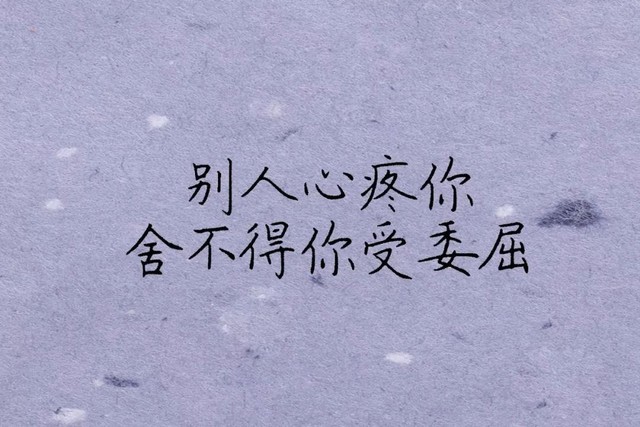 别人心疼你
舍不得你受委屈